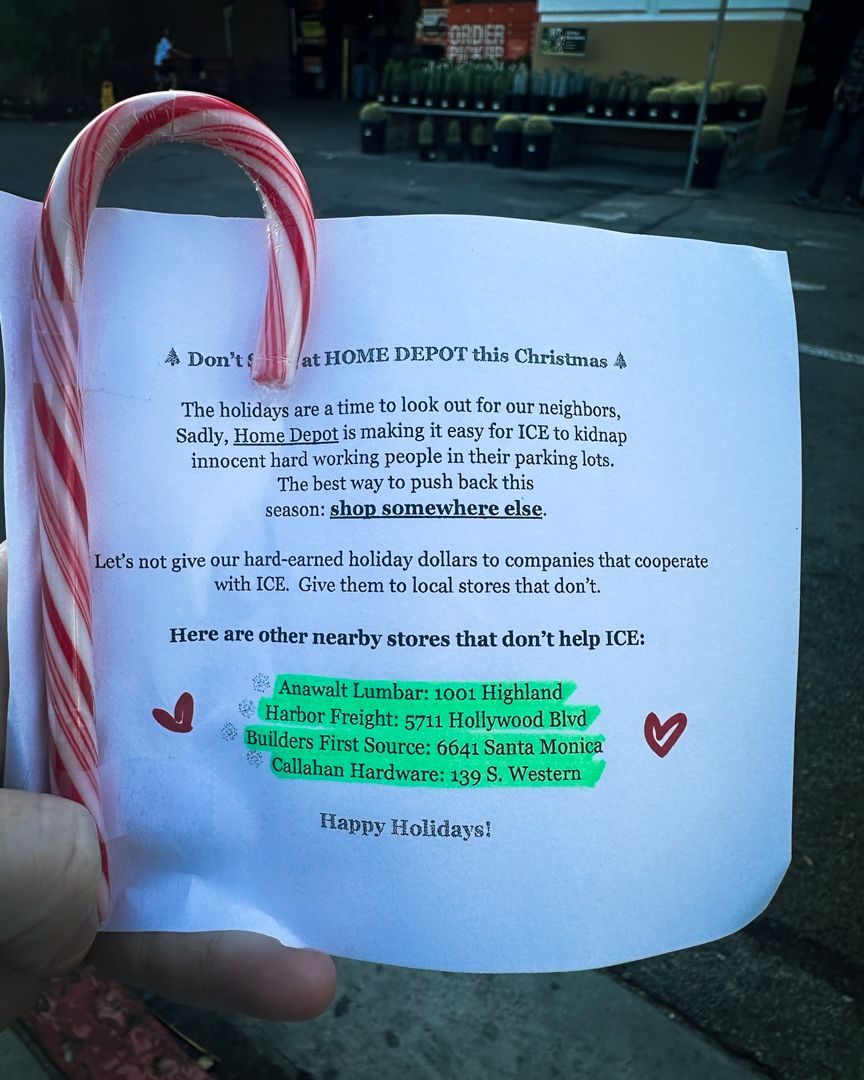 ORDER
PICKER
Don't at HOME DEPOT this Christmas
The holidays are a time to look out for our neighbors,
Sadly, Home Depot is making it easy for ICE to kidnap
innocent hard working people in their parking lots.
The best way to push back this
season: shop somewhere else.
Let's not give our hard-earned holiday dollars to companies that cooperate
with ICE. Give them to local stores that don't.
Here are other nearby stores that don't help ICE:
Anawalt Lumbar: 1001 Highland
Harbor Freight: 5711 Hollywood Blvd
Builders First Source: 6641 Santa Monica
Callahan Hardware: 139 S. Western
Happy Holidays!